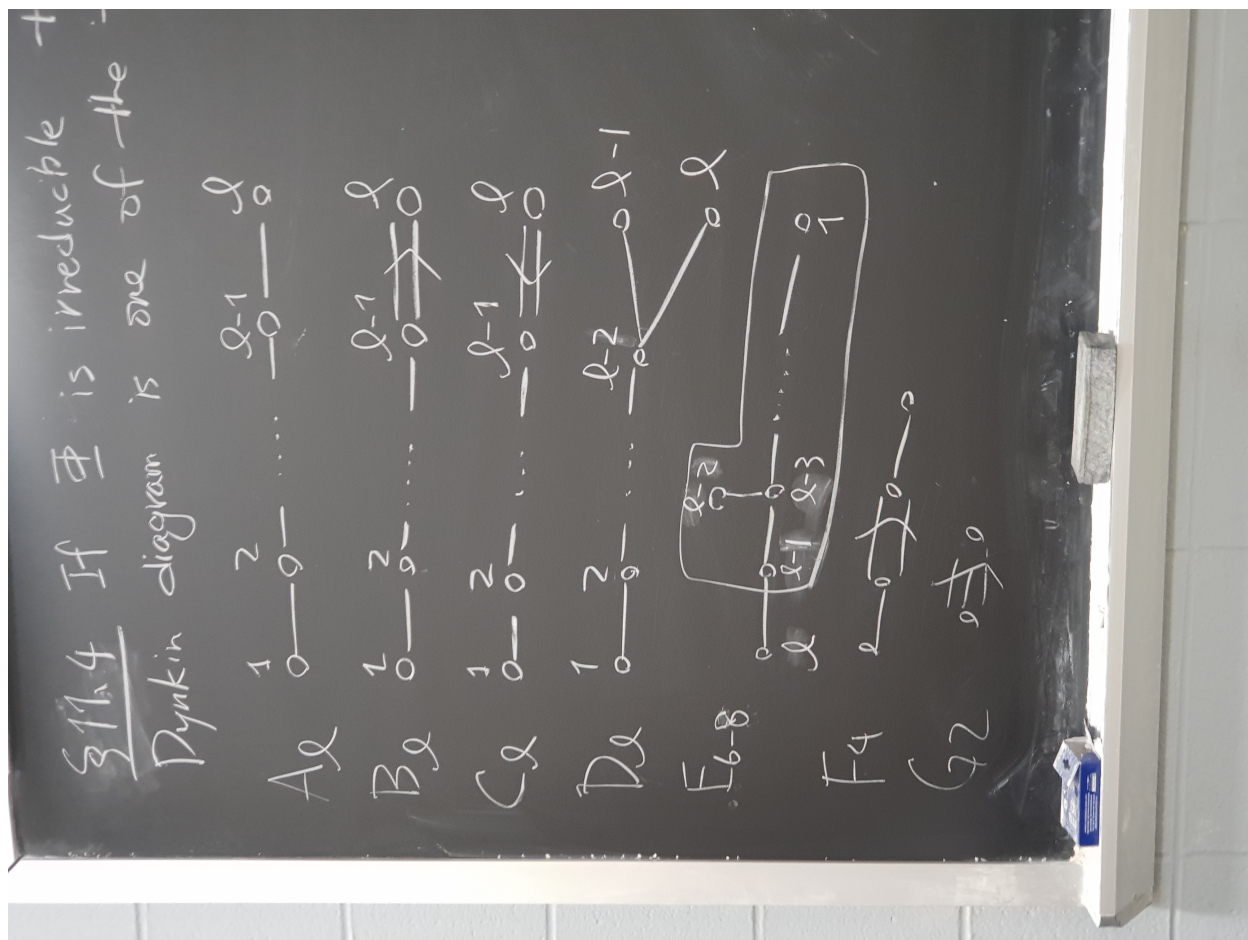 §11.4 If Φ is irreducible t
Dynkin diagram is one of the
Aℓ 1 2 ℓ-1 ℓ
Bℓ 1 2 ℓ-1 ℓ
Cℓ 1 2 ℓ-1 ℓ
Dℓ 1 2 ℓ-2 ℓ-1 ℓ
E6-8 ℓ ℓ-1 ℓ-2 ℓ-3 1
F4
G2